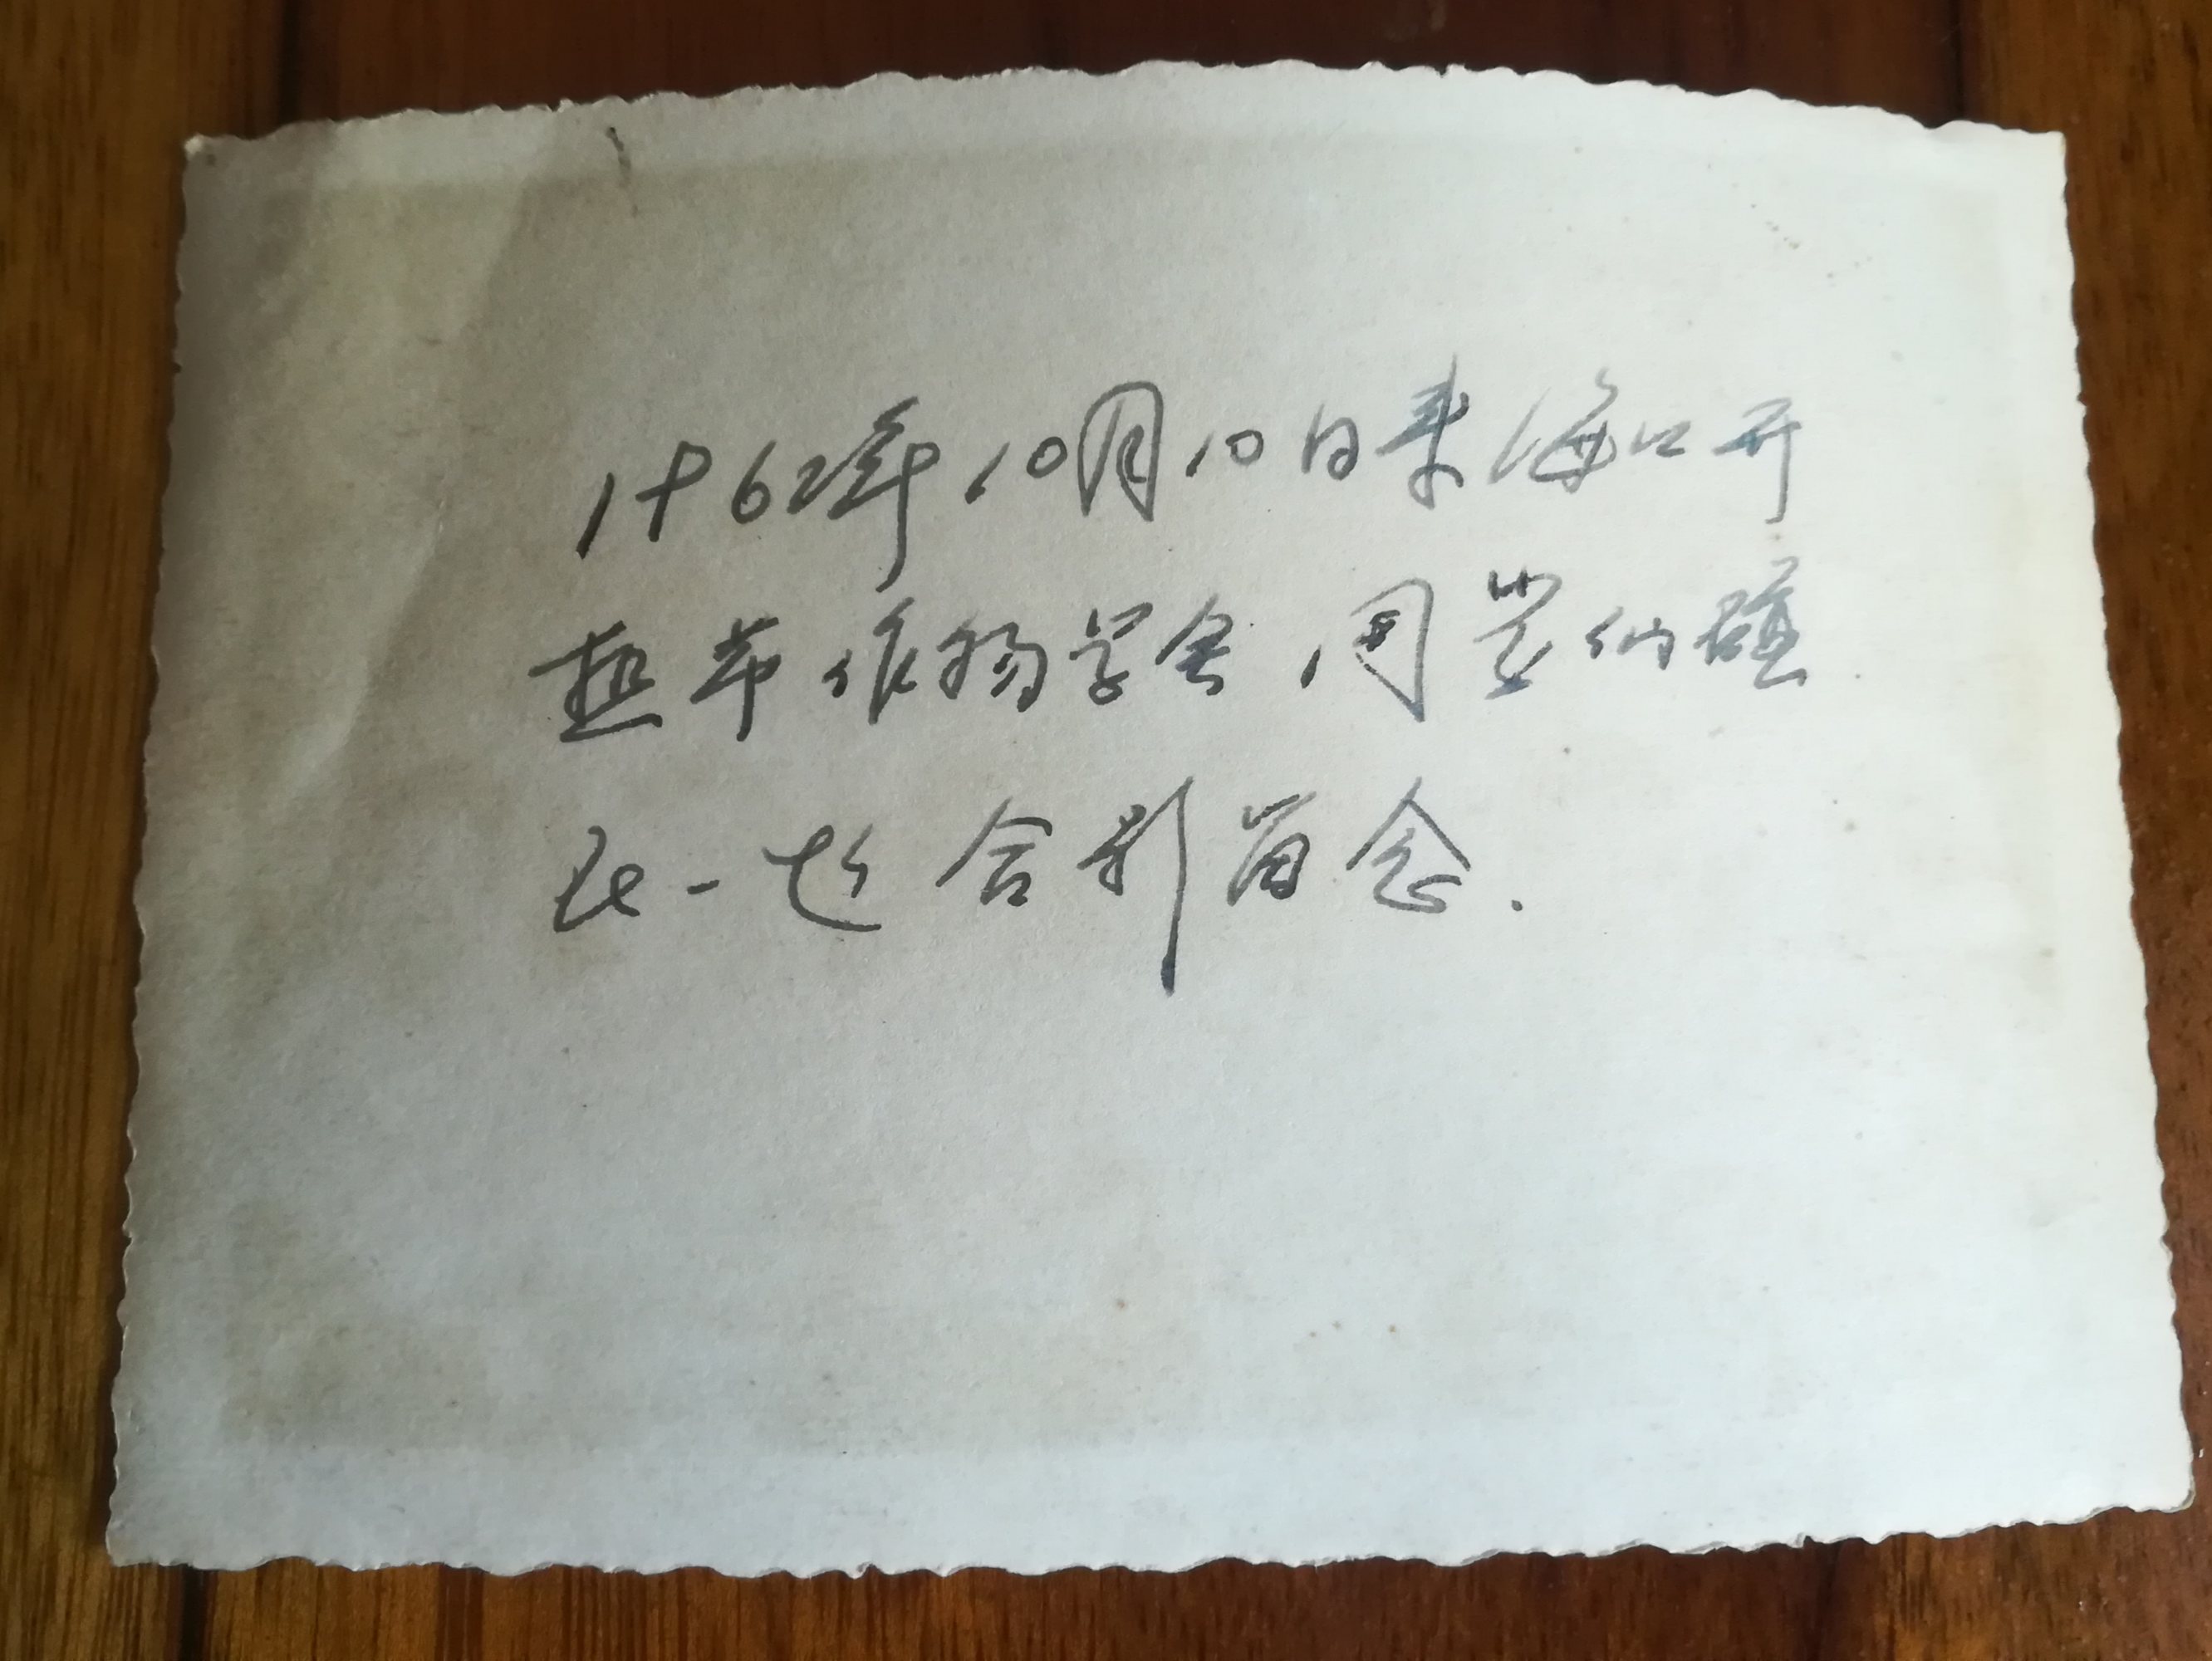 1962年10月10日来海口开
热带作物学会,同岁
在一起合影留念.